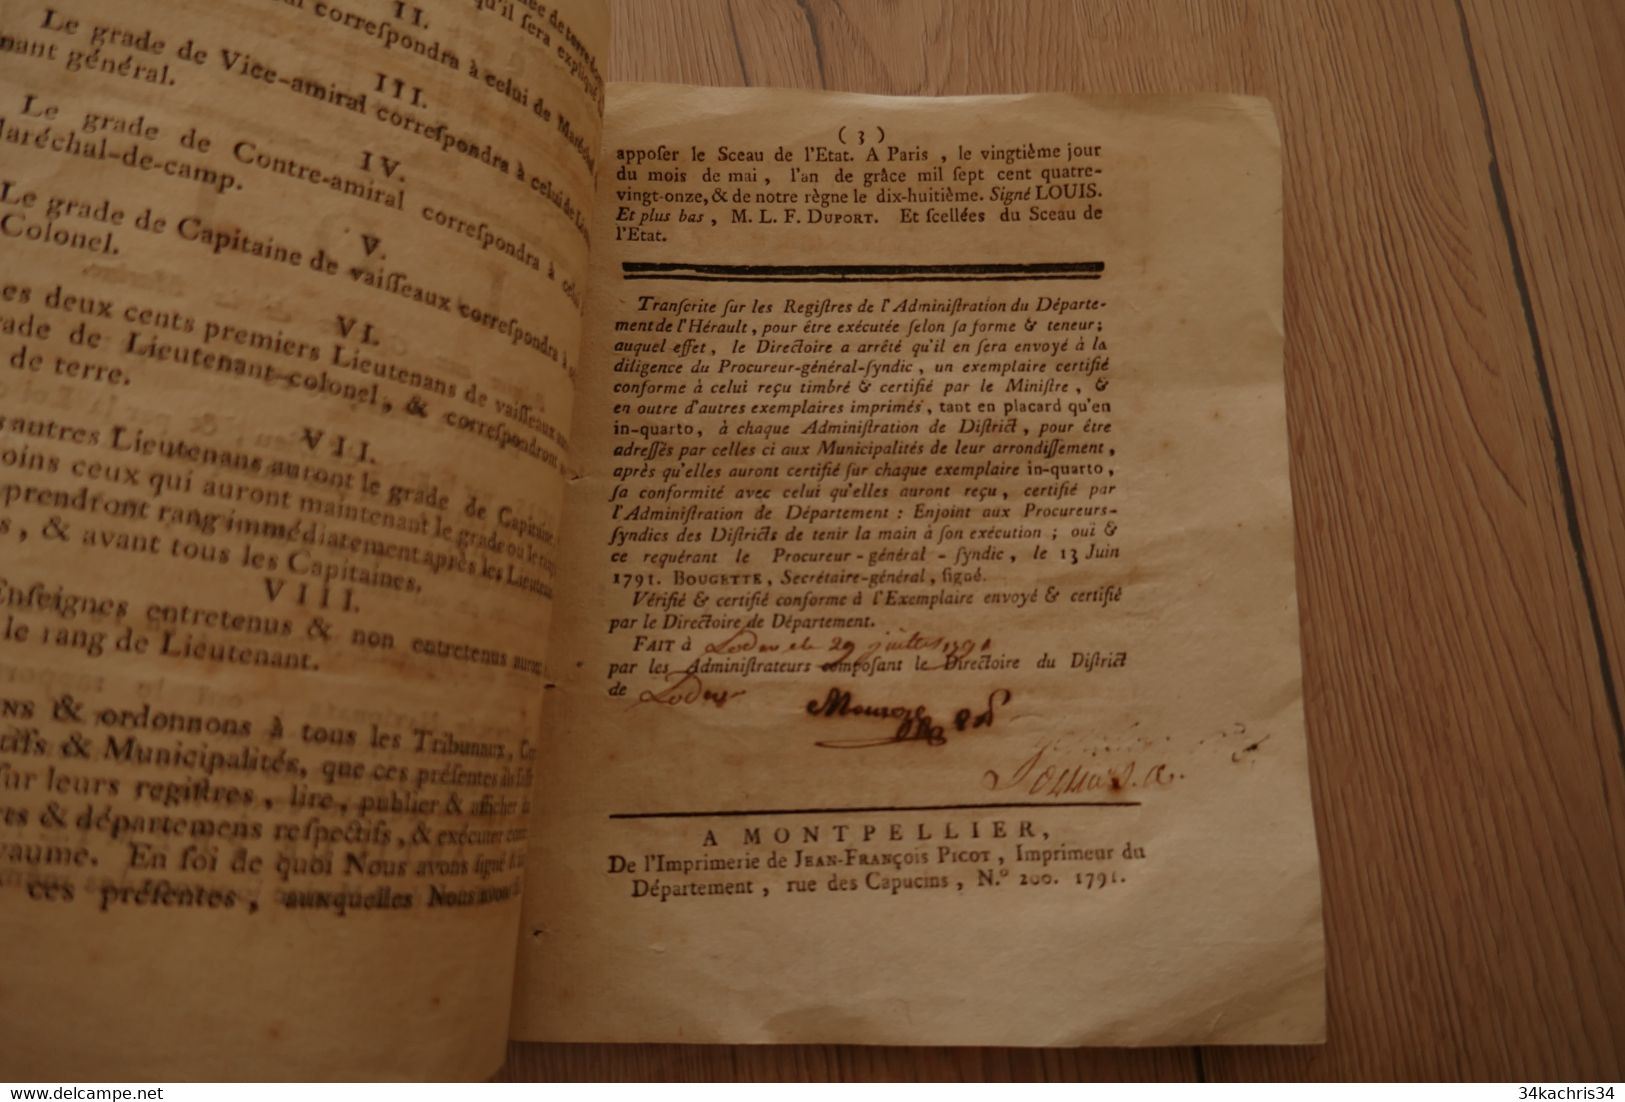 II.
correſpondra à celui de Maréchal
qu'il ſera expliqué
III.
Le grade de Vice-amiral correſpondra à celui de Lieu
nant général.
IV.
Le grade de Contre-amiral correſpondra à celui
Maréchal-de-camp.
V.
Le grade de Capitaine de vaiſſeaux correſpondra à
Colonel.
VI.
es deux cents premiers Lieutenans de vaiſſeaux auront
rade de Lieutenant-colonel, & correſpondront
de terre.
VII.
s autres Lieutenans auront le grade de Capitaine
oins ceux qui auront maintenant le grade ou le rang
prendront rang immédiatement après les Lieutenans
s, & avant tous les Capitaines.
VIII.
Enſeignes entretenus & non entretenus auront
le rang de Lieutenant.
NS & ordonnons à tous les Tribunaux, Co
tifs & Municipalités, que ces préſentes
ſur leurs regiſtres, lire, publier & afficher
res & départemens reſpectifs, & exécuter
yaume. En foi de quoi Nous avons ſigné
ces préſentes, auxquelles Nous avons
( 3 )
appoſer le Sceau de l'Etat. A Paris , le vingtième jour
du mois de mai , l'an de grâce mil ſept cent quatre-
vingt-onze, & de notre règne le dix-huitième. Signé LOUIS.
Et plus bas , M. L. F. DUPORT. Et ſcellées du Sceau de
l'Etat.
Tranſcrite ſur les Regiſtres de l'Adminiſtration du Départe-
ment de l'Hérault, pour être exécutée ſelon ſa forme & teneur;
auquel effet , le Directoire a arrêté qu'il en ſera envoyé à la
diligence du Procureur-général-ſyndic , un exemplaire certifié
conforme à celui reçu timbré & certifié par le Miniſtre , &
en outre d'autres exemplaires imprimés , tant en placard qu'en
in-quarto, à chaque Adminiſtration de Diſtrict , pour être
adreſſés par celles ci aux Municipalités de leur arrondiſſement ,
après qu'elles auront certifié ſur chaque exemplaire in-quarto ,
ſa conformité avec celui qu'elles auront reçu , certifié par
l'Adminiſtration de Département : Enjoint aux Procureurs-
ſyndics des Diſtricts de tenir la main à ſon exécution ; ouï &
ce requérant le Procureur-général-ſyndic , le 13 Juin
1791. BOUGETTE , Secrétaire-général , ſigné.
Vérifié & certifié conforme à l'Exemplaire envoyé & certifié
par le Directoire de Département.
FAIT à Lodeve le 29 juillet 1791
par les Adminiſtrateurs compoſant le Directoire du Diſtrict
de Lodeve
A MONTPELLIER,
De l'Imprimerie de JEAN-FRANÇOIS PICOT , Imprimeur du
Département , rue des Capucins , N.º 200. 1791.
delcampe.net
34kachris34